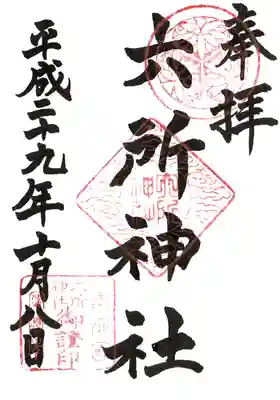 奉拝
六所神社
平成二十九年十月八日